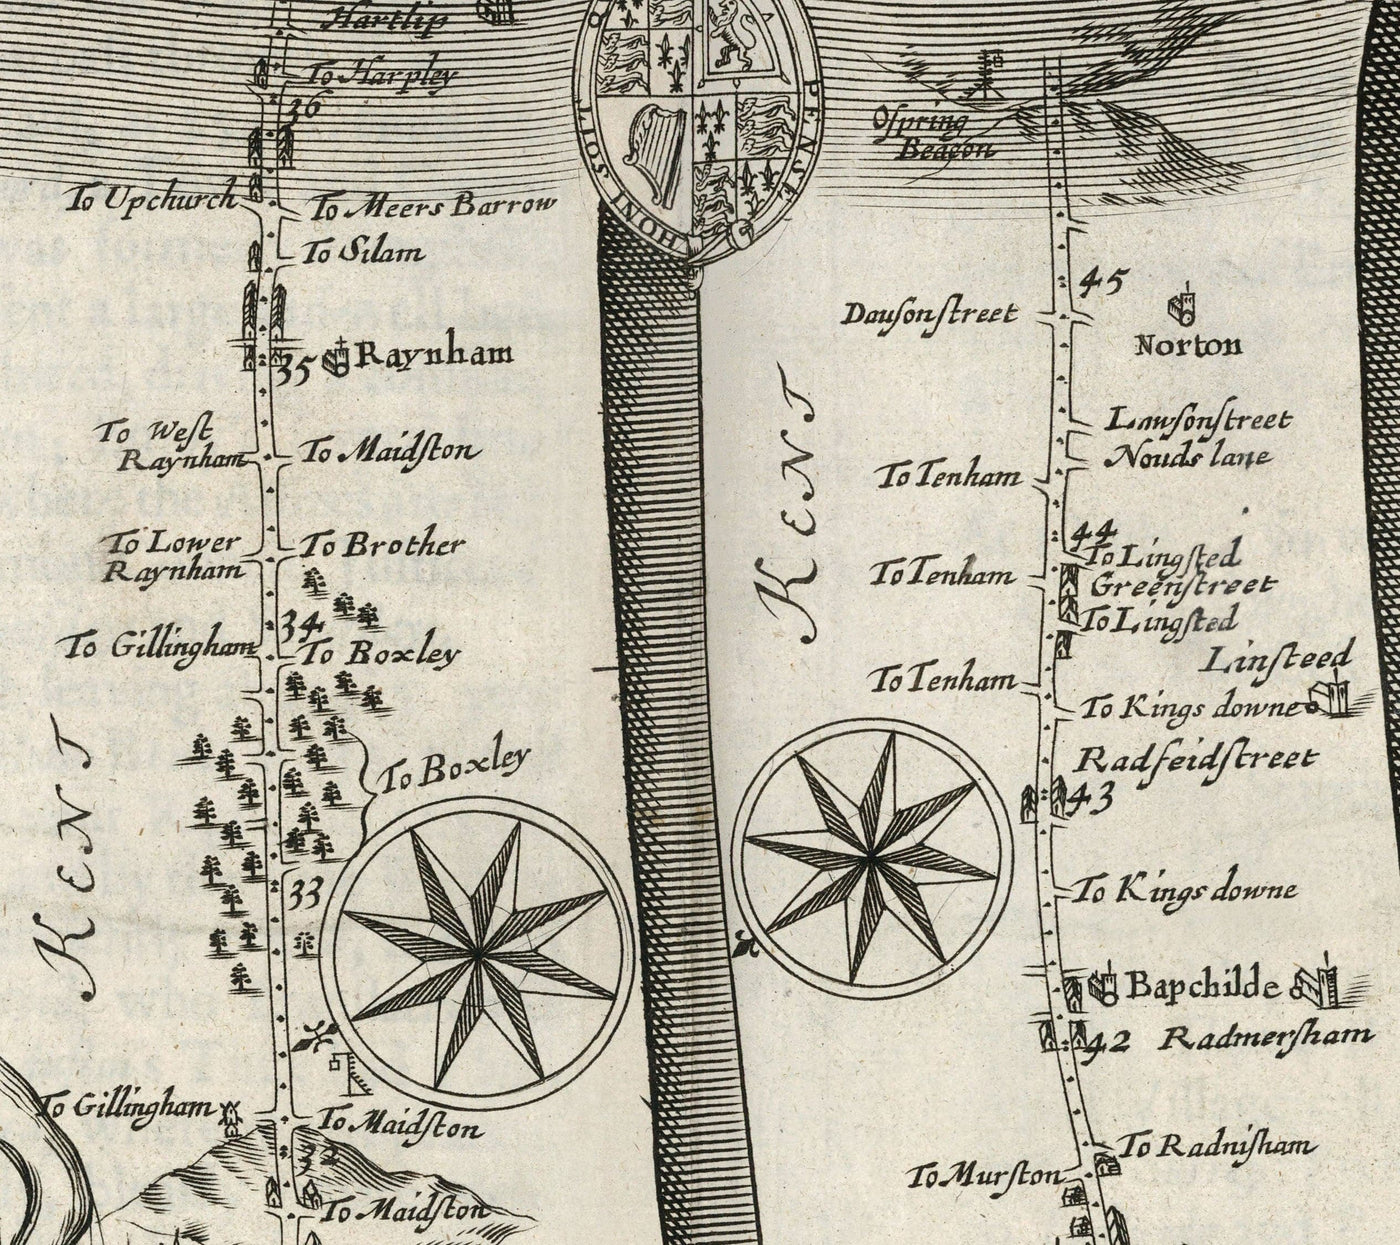 Hartlip
To Harpley
36
To Upchurch
To Meers Barrow
To Silam
35 Raynham
To Weſt
Raynham
To Maidſton
To Lower
Raynham
To Brother
34
To Gillingham
To Boxley
To Boxley
KENT
33
To Gillingham
To Maidſton
32
To Maidſton
HONI SOIT
PENSE
Oſpring
Beacon
45
Dauſonſtreet
Norton
Lawſonſtreet
Nouds lane
To Tenham
44
To Lingſted
Greenſtreet
To Tenham
To Lingſted
Linſteed
To Tenham
To Kings downe
KENT
Radfeidſtreet
43
To Kings downe
Bapchilde
42 Radmerſham
To Radniſham
To Murſton